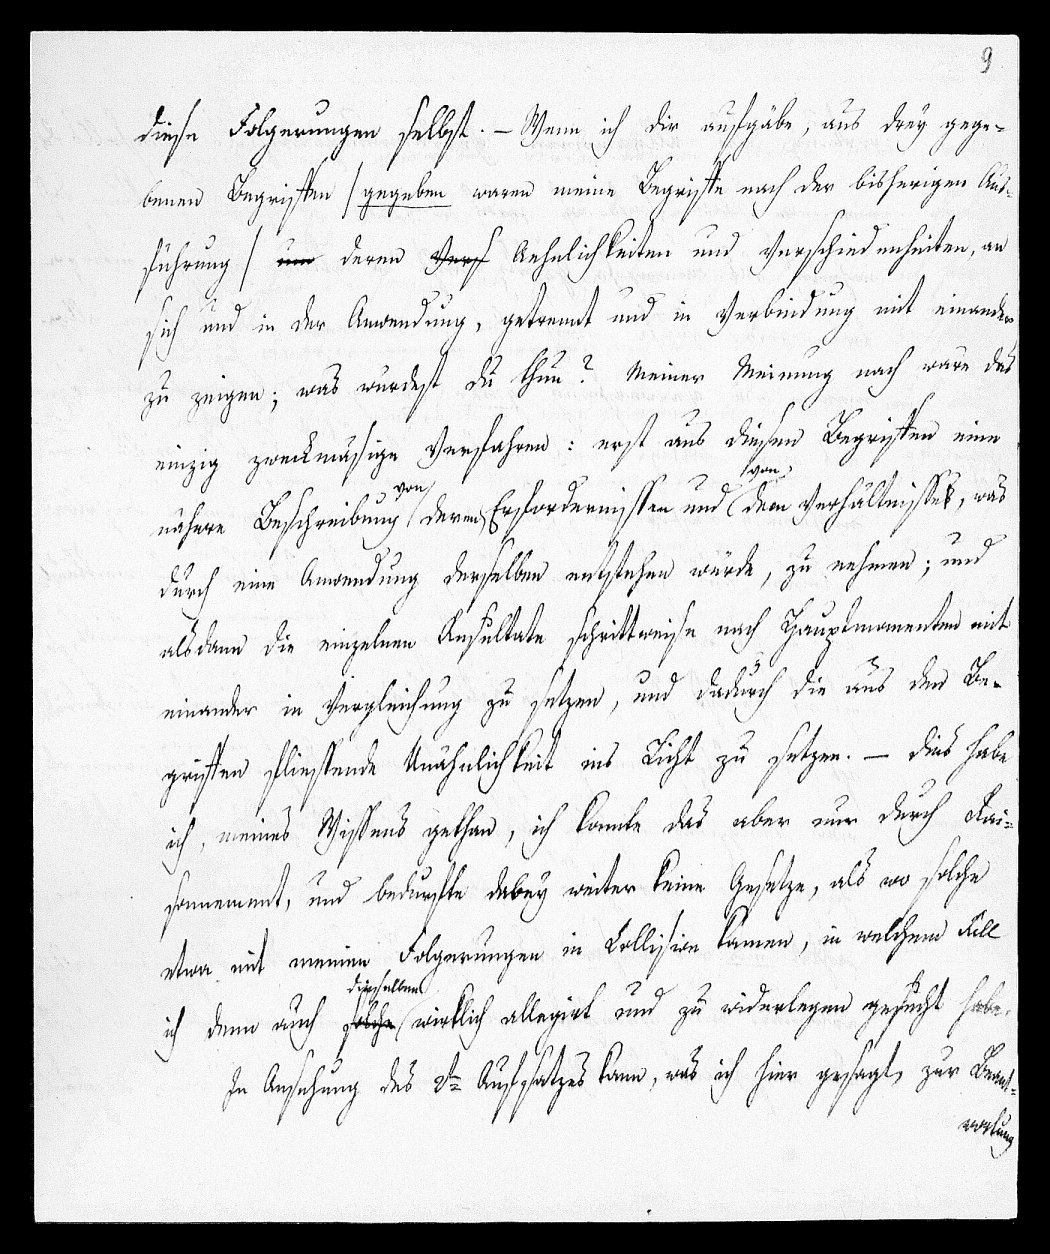 9
diese Folgerungen selbst. – Wenn ich dir aufgäbe, aus drey gege-
benen Begriffen / gegeben waren meine Begriffe nach der bisherigen Aus-
führung / um deren Vers Aehnlichkeiten und Verschiedenheiten, an
sich und in der Anwendung, getrennt und in Verbindung mit einander
zu zeigen; was wurdest du thun? Meiner Meinung nach ware das
einzig zweckmäsige Verfahren: erst aus diesen Begriffen eine
von von
nähere Beschreibung deren Erfordernissen und dem Verhältnisses, was
durch eine Anwendung derselben entstehen würde, zu nehmen; und
alsdann die einzelnen Resultate schrittweise nach Hauptmomenten mit
einander in Vergleichung zu setzen, und dadurch die aus den Be-
griffen fliessende Unähnlichkeit ins Licht zu setzen. – Dies habe
ich, meines Wissens gethan, ich konnte das aber nur durch Rai-
sonnement, und bedurfte dabey weiter keine Gesetze, als wo solche
etwa mit meinen Folgerungen in Collision kamen, in welchem Fall
dieselben
ich denn auch solche wirklich allegirt und zu widerlegen gesucht habe.
In Ansehung des Aufsatzes kann, was ich hier gesagt, zur Beant-
wortung